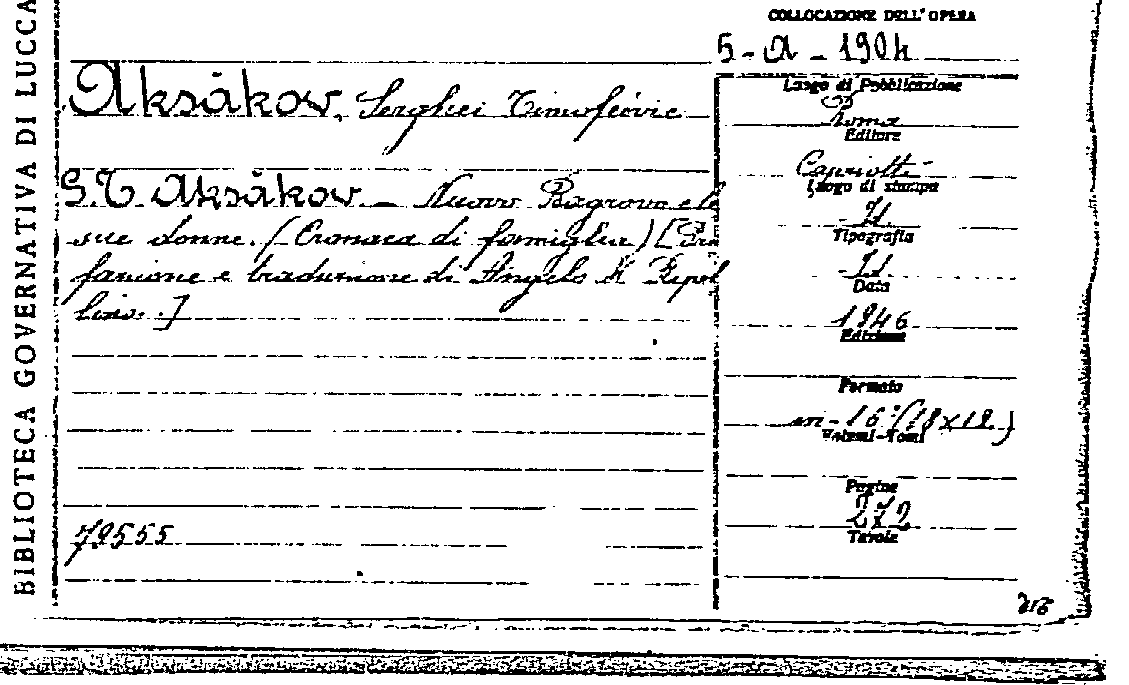 BIBLIOTECA GOVERNATIVA DI LUCCA
COLLOCAZIONE DELL'OPERA
5-A-1904
Aksàkov, Serghiei Timofèèvic
S.T. Aksàkov. - Nuovo Bagrovo e le
sue donne. (Cronaca di famiglia) [Pre
fazione e traduzione di Angelo M Ripel
lino.]
79555
Luogo di Pubblicazione
Roma
Editore
Capriotti
Luogo di stampa
Id
Tipografia
Id
Data
1946
Edizione
Formato
in-16°(18x12)
Volumi-Tomi
Pagine
272
Tavole